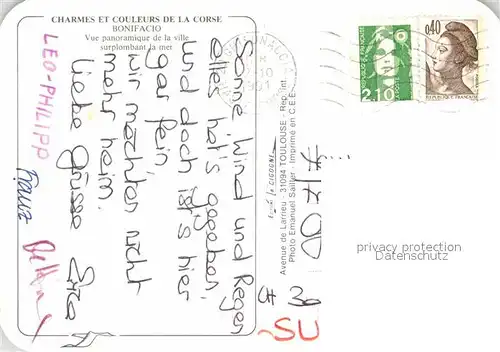 CHARMES ET COULEURS DE LA CORSE
BONIFACIO
Vue panoramique de la ville
surplombant la mer
Sonne, Wind und Regen
alles hat's gegeben
und doch ist's hier
gar fein
wir möchten nicht
mehr heim.
Liebe Grüsse
LEO-PHILIPP
Franz
Avenue de Larrieu - 31094 TOULOUSE - Rep. int.
Photo Emanuel Sailler - Imprimé en C.E.E.
1991
2,10
0,40
REPUBLIQUE FRANÇAISE
CH 30
-SU
privacy protection
Datenschutz